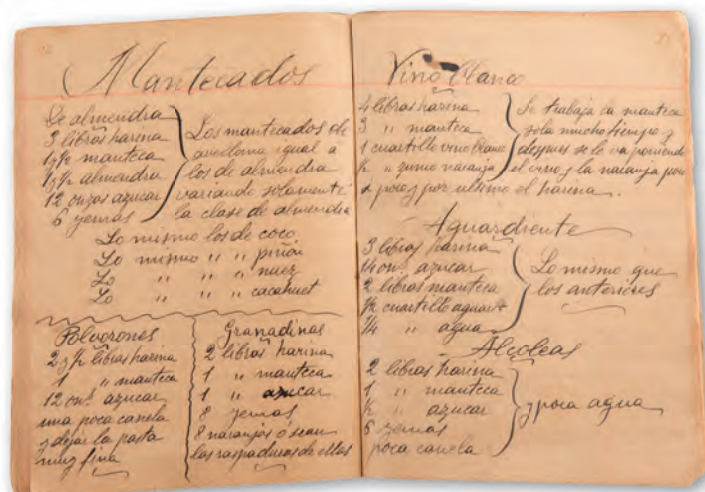 Mantecados
De almendra
3 libras harina
1 y ½ manteca
1 y ½ almendra
12 onzas azucar
6 yemas
Los mantecados de
avellana igual á
los de almendra
variando solamente
la clase de almendra
Lo mismo los de coco
Lo mismo " " piñón
Lo " " " nuez
Lo " " " cacahuet
Polvorones
2 y ½ libras harina
1 " manteca
12 onz. azucar
una poca canela
y dejar la pasta
muy fina
Granadinas
2 libras harina
1 " manteca
1 " azucar
8 yemas
8 naranjas ó sean
las raspaduras de ellas
Vino blanco
4 libras harina
3 " manteca
1 cuartillo vino blanco
½ " zumo naranja
Se trabaja la manteca
sola mucho tiempo y
despues se le va poniendo
el vino y la naranja poco
a poco y por ultimo el harina.
Aguardiente
3 libras harina
onz. azucar
2 libras manteca
½ cuartillo aguard
¼ " agua
Lo mismo que
los anteriores
Alcoleas
2 libras harina
1 " manteca
½ " azucar
6 yemas
poca canela
y poca agua